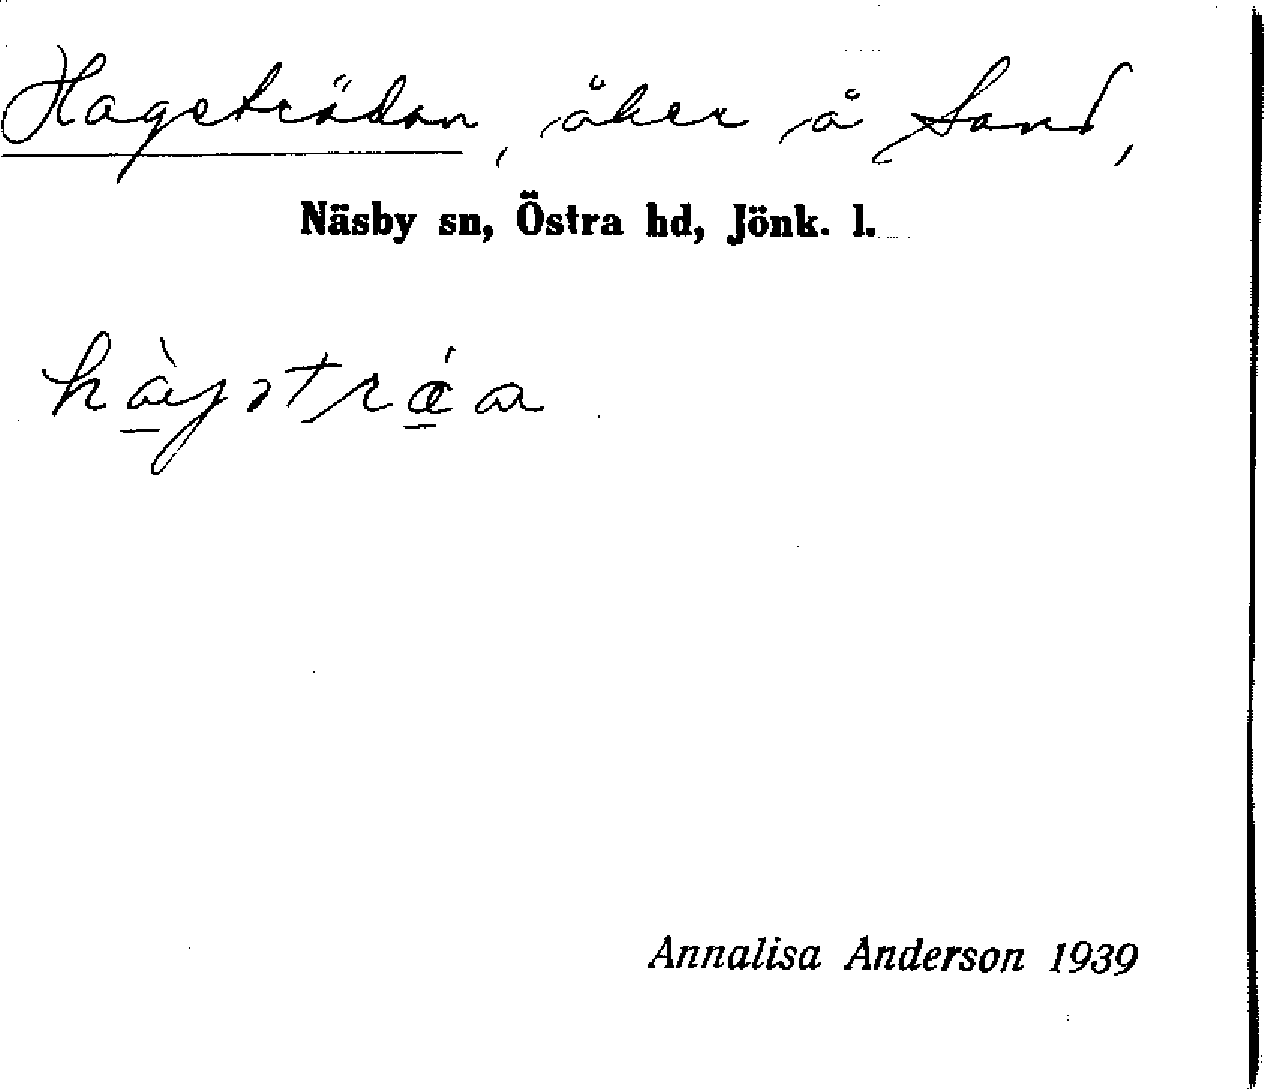 Hageträdan, åker å Sand,
Näsby sn, Östra hd, Jönk. l.
hàgətrǽa
Annalisa Anderson 1939